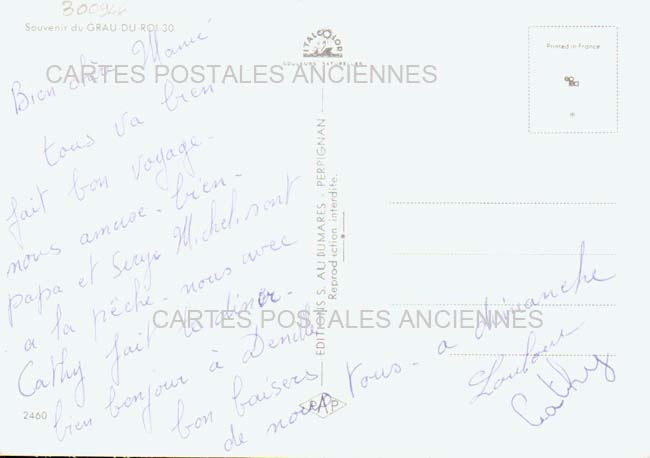 300944
Souvenir du GRAU-DU-ROI 30
Bien chère Mamé
tous va bien
fait bon voyage.
nous amuse. bien.
papa et Serge Michel. sont
a la pêche. nous avec
Cathy fait le diner.
bien bonjour à
bon baisers
de nous tous. a dimanche
Cathy
2460
VITALCOLOR
COULEURS NATURELLES
EDITIONS S. AUDUMARES - PERPIGNAN -
Reproduction interdite.
Printed in France
CARTES POSTALES ANCIENNES
CARTES POSTALES ANCIENNES